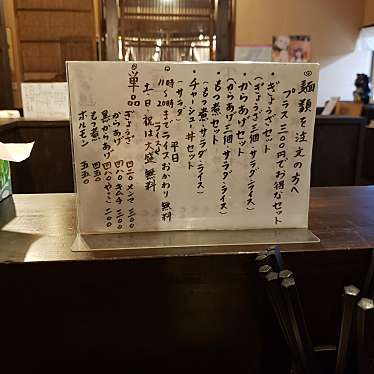 ◎麺類を注文の方へ
プラス三〇〇円でお得なセット
・ぎょうざセット
(ぎょうざ三個・サラダ・ライス)
・からあげセット
(からあげ二個・サラダ・ライス)
・もつ煮セット
(もつ煮・サラダ・ライス)
・チャーシュー丼セット
(サラダ)
平日
11時〜20時までライスおかわり無料
土・日・祝は大盛無料
◎単品
ぎょうざ 四二〇 メンマ 三〇〇
からあげ 四八〇 キムチ 三〇〇
黒からあげ 四八〇 やっこ 二〇〇
もつ煮 四五〇
ホルモン 五五〇